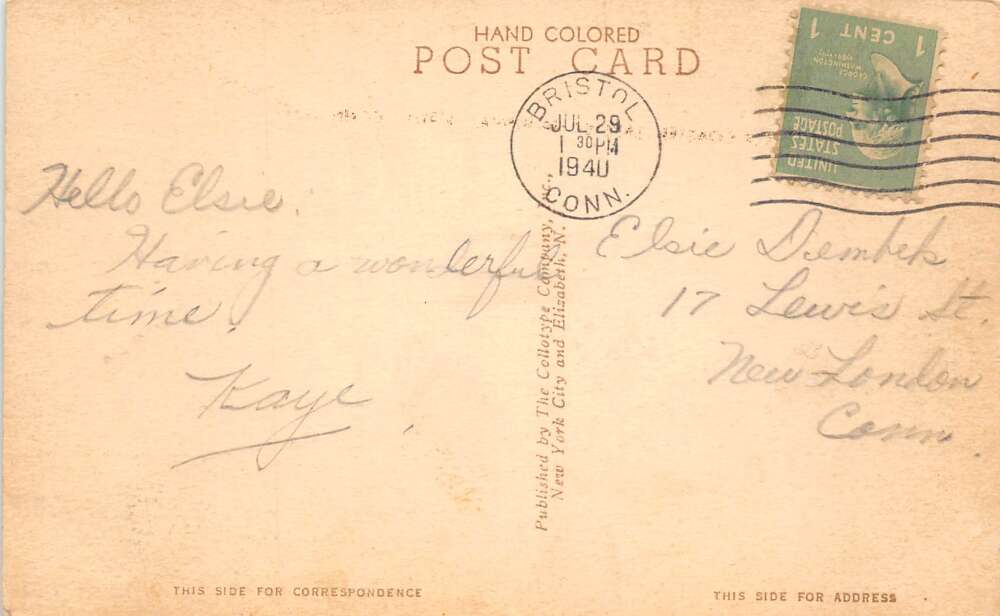 HAND COLORED
POST CARD
BRISTOL
JUL 29
1 30 PM
1940
CONN.
1 CENT 1
GEORGE
WASHINGTON
UNITED
STATES
POSTAGE
Hello Elsie.
Having a wonderful
time.
Kaye
Published by The Collotype Company,
New York City and Elizabeth, N.
Elsie Dembek
17 Lewis St.
New London
Conn
THIS SIDE FOR CORRESPONDENCE
THIS SIDE FOR ADDRESS